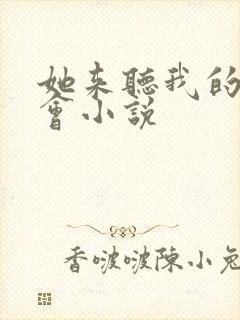 她来聽我的
會小説
香啵啵陳小兔